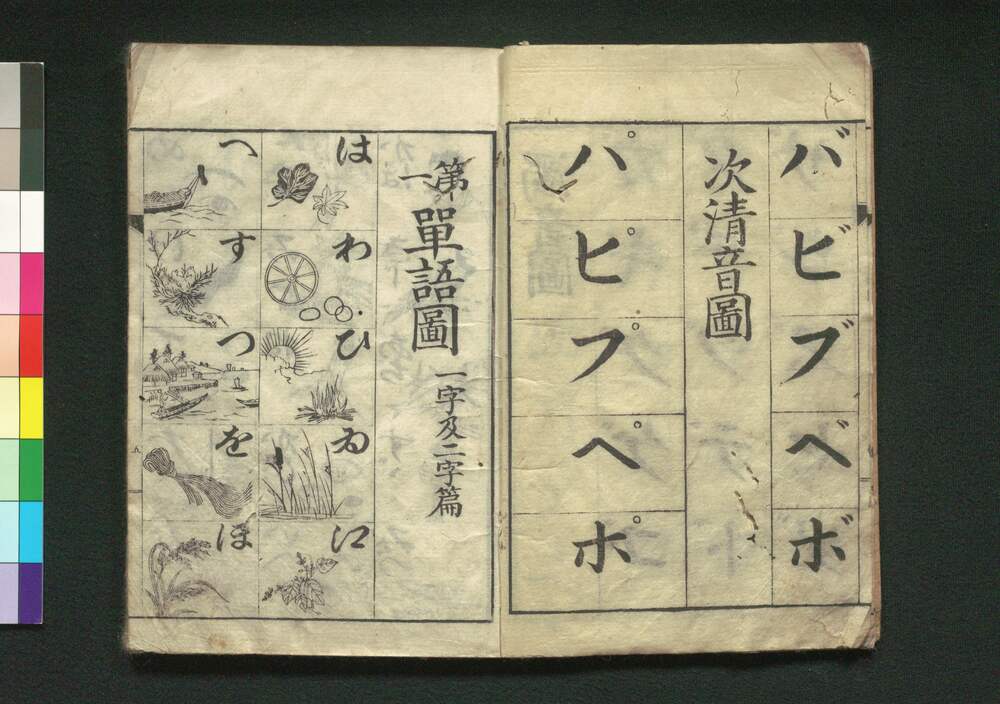 バビブベボ
次清音圖
パピプペポ
第一單語圖 一字及二字篇
はわひゐ江
へすつをほ